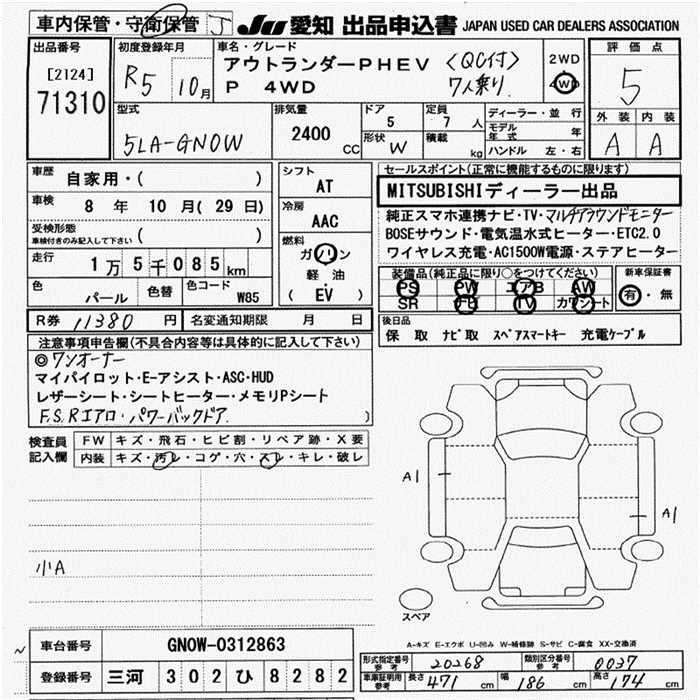 車内保管・守衛保管 J JU 愛知 出品申込書 JAPAN USED CAR DEALERS ASSOCIATION
出品番号
[2124]
71310
初度登録年月
R5 10月
車名・グレード
アウトランダーPHEV <QC付>
P 4WD 7人乗り.
2WD
4WD
評価点
5
外装 内装
A A
型式
5LA-GN0W
排気量
2400 CC
ドア
5
形状 W
定員
7 人
積載
kg
ディーラー・並行
モデル年式 年
ハンドル 左・右
車歴
自家用・( )
車検 8 年 10 月 (29 日)
受検形態
車検付きのみ記入して下さい ( )
走行 1万5千085km
色 パール
色替
色コード W85
シフト
AT
冷房
AAC
燃料
ガソリン
軽油
( EV )
セールスポイント(正常に機能するものに限ります)
MITSUBISHIディーラー出品
純正スマホ連携ナビ・TV・マルチアラウンドモニター
BOSEサウンド・電気温水式ヒーター・ETC2.0
ワイヤレス充電・AC1500W電源・ステアヒーター
装備品(純正品に限り○をつけてください)
PS PW エアB AW
SR ナビ TV カワシート
新車保証書
有・無
R券 11380 円 名変通知期限 月 日
後日品
保 取 ナビ取 スペアスマートキー 充電ケーブル
注意事項申告欄(不具合内容等は具体的に記入して下さい)
◎ワンオーナー
マイパイロット・E-アシスト・ASC・HUD
レザーシート・シートヒーター・メモリPシート
F.S.Rエアロ・パワーバックドア.
検査員記入欄
FW キズ・飛石・ヒビ割・リペア跡・X要
内装 キズ・汚レ・コゲ・穴・スレ・キレ・破レ
小A
A1
A1
スペア
A-キズ E-エクボ U-凹み W-補修跡 S-サビ C-腐食 XX-交換済
車台番号 GN0W-0312863
登録番号 三河 302 ひ 8282
形式指定番号 参考 20268
類別区分番号 参考 0037
車庫証明用参考 長さ 471 cm 幅 186 cm 高さ 174 cm